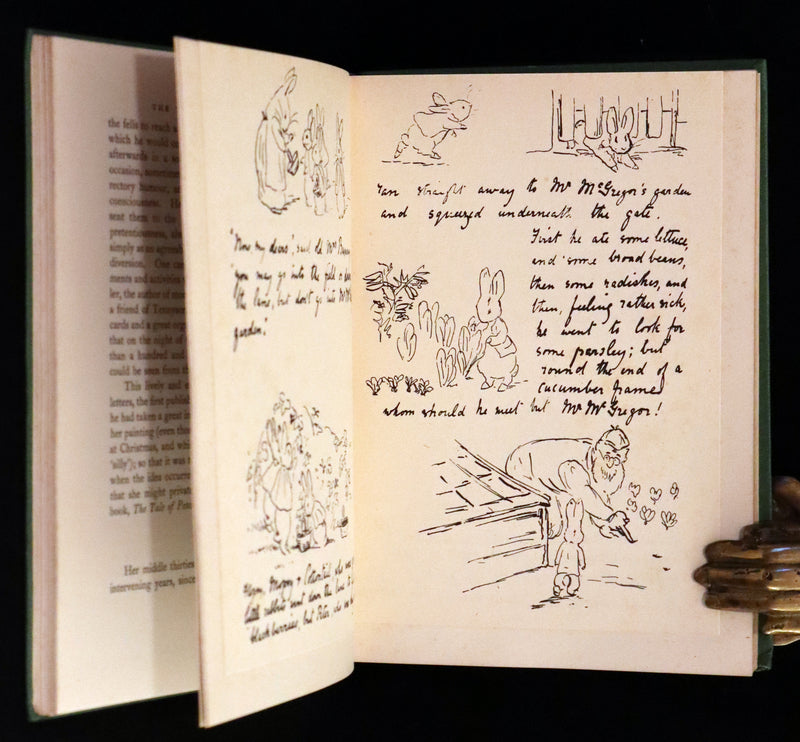 THE
the fells to reach
which he would
afterwards in a
occasion, sometimes
rectory humour,
consciousness. He
sent them to the
pretentiousness,
simply as an
diversion. One
ments and activities
ler, the author of
a friend of Tennyson
cards and a great
that on the night of
than a hundred and
could be seen from
This lively and
letters, the first
he had taken a great
her painting (even
at Christmas, and
'silly'); so that it was
when the idea
that she might
book, The Tale of
Her middle thirties
intervening years, since
"Now my dears", said old Mrs
"you may go into the field or
the lane, but don't go into Mr
garden."
little rabbits went down the lane to
blackberries, but Peter, who was
ran straight away to Mr McGregor's garden
and squeezed underneath the gate.
First he ate some lettuce,
and some broad beans,
then some radishes, and
then, feeling rather sick,
he went to look for
some parsley; but
round the end of a
cucumber frame
whom should he meet but Mr McGregor!